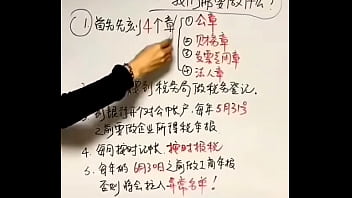 我们需要做什么?
①首先先刻4个章
①公章
②财务章
③发票专用章
④法人章
到税务局做税务登记.
到银行开个对公帐户.每年5月31号
之前要做企业所得税年报
4.每月按时记帐.按时报税
5.每年的6月30日之前做工商年报
否则将会拉入异常名单!